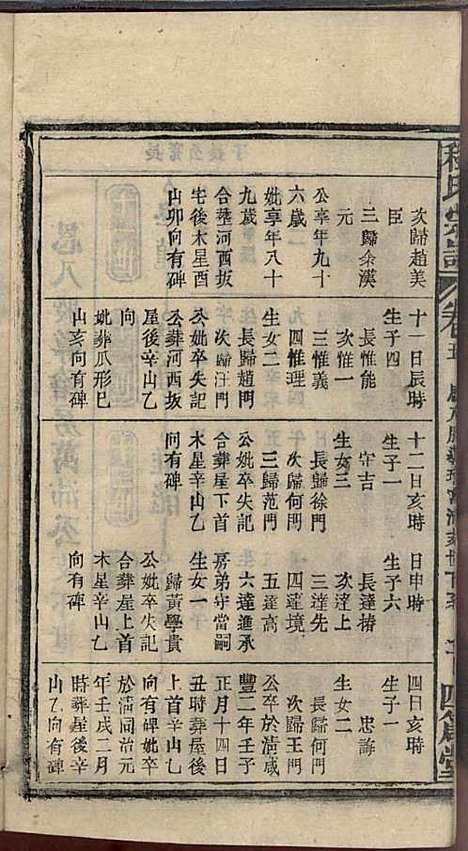 次歸趙美
臣
三歸余漢
元
公卒年九十
六歲
妣享年八十
九歲
合塟河西坂
宅後木星酉
山卯向有碑
十一日辰時
生子四
長惟能
次惟一
三惟義
四惟理
生女二
長歸趙門
次歸汪門
公妣卒失記
公葬河西坂
屋後辛山乙
向
妣葬爪形巳
山亥向有碑
十二日亥時
生子一
守吉
生女三
長歸徐門
次歸何門
三歸范門
公妣卒失記
合葬屋下首
木星辛山乙
向有碑
日申時
生子六
長達椿
次達上
三達先
四達境
五達高
六達進承
房弟守當嗣
生女一
歸黃學貴
公妣卒失記
合葬屋上首
木星辛山乙
向有碑
四日亥時
生子一
忠謝
生女二
長歸何門
次歸王門
公卒於淸咸
豐二年壬子
正月十四日
丑時葬屋後
上首辛山乙
向有碑妣卒
於淸同治元
年壬戌二月
時葬屋後辛
山乙向有碑
程氏宗譜
卷五